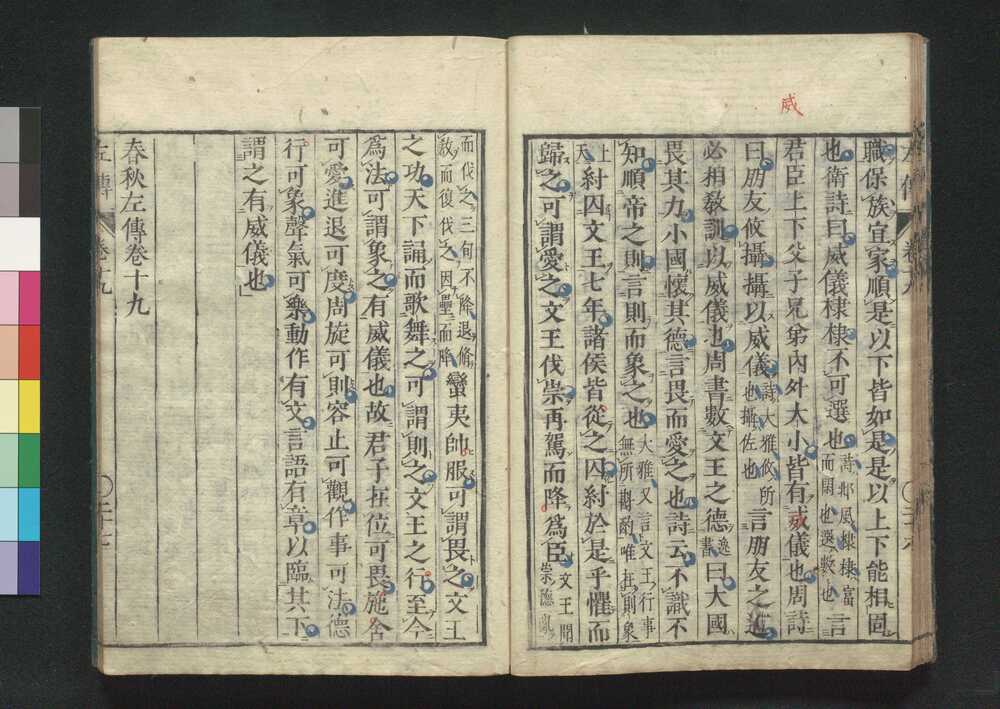 威
職保族宜家順是以下皆如是是以上下能相固
也衛詩曰威儀棣棣不可選也詩邶風棣棣富而閑也選數也言
君臣上下父子兄弟內外大小皆有威儀也周詩
曰朋友攸攝攝以威儀詩大雅攸所也攝佐也言朋友之道
必相敎訓以威儀也周書數文王之德逸書曰大國
畏其力小國懷其德言畏而愛之也詩云不識不
知順帝之則言則而象之也大雅又言文王行事無所斟酌唯在則象上天
紂囚文王七年諸侯皆從之囚紂於是乎懼而
歸之可謂愛之文王伐崇再駕而降爲臣文王聞崇德亂
而伐之三旬不降退脩敎而復伐之因壘而降蠻夷帥服可謂畏之文王
之功天下誦而歌舞之可謂則之文王之行至今
爲法可謂象之有威儀也故君子在位可畏施舍
可愛進退可度周旋可則容止可觀作事可法德
行可象聲氣可樂動作有文言語有章以臨其下
謂之有威儀也
春秋左傳卷十九
左傳
卷十九
〇二十七